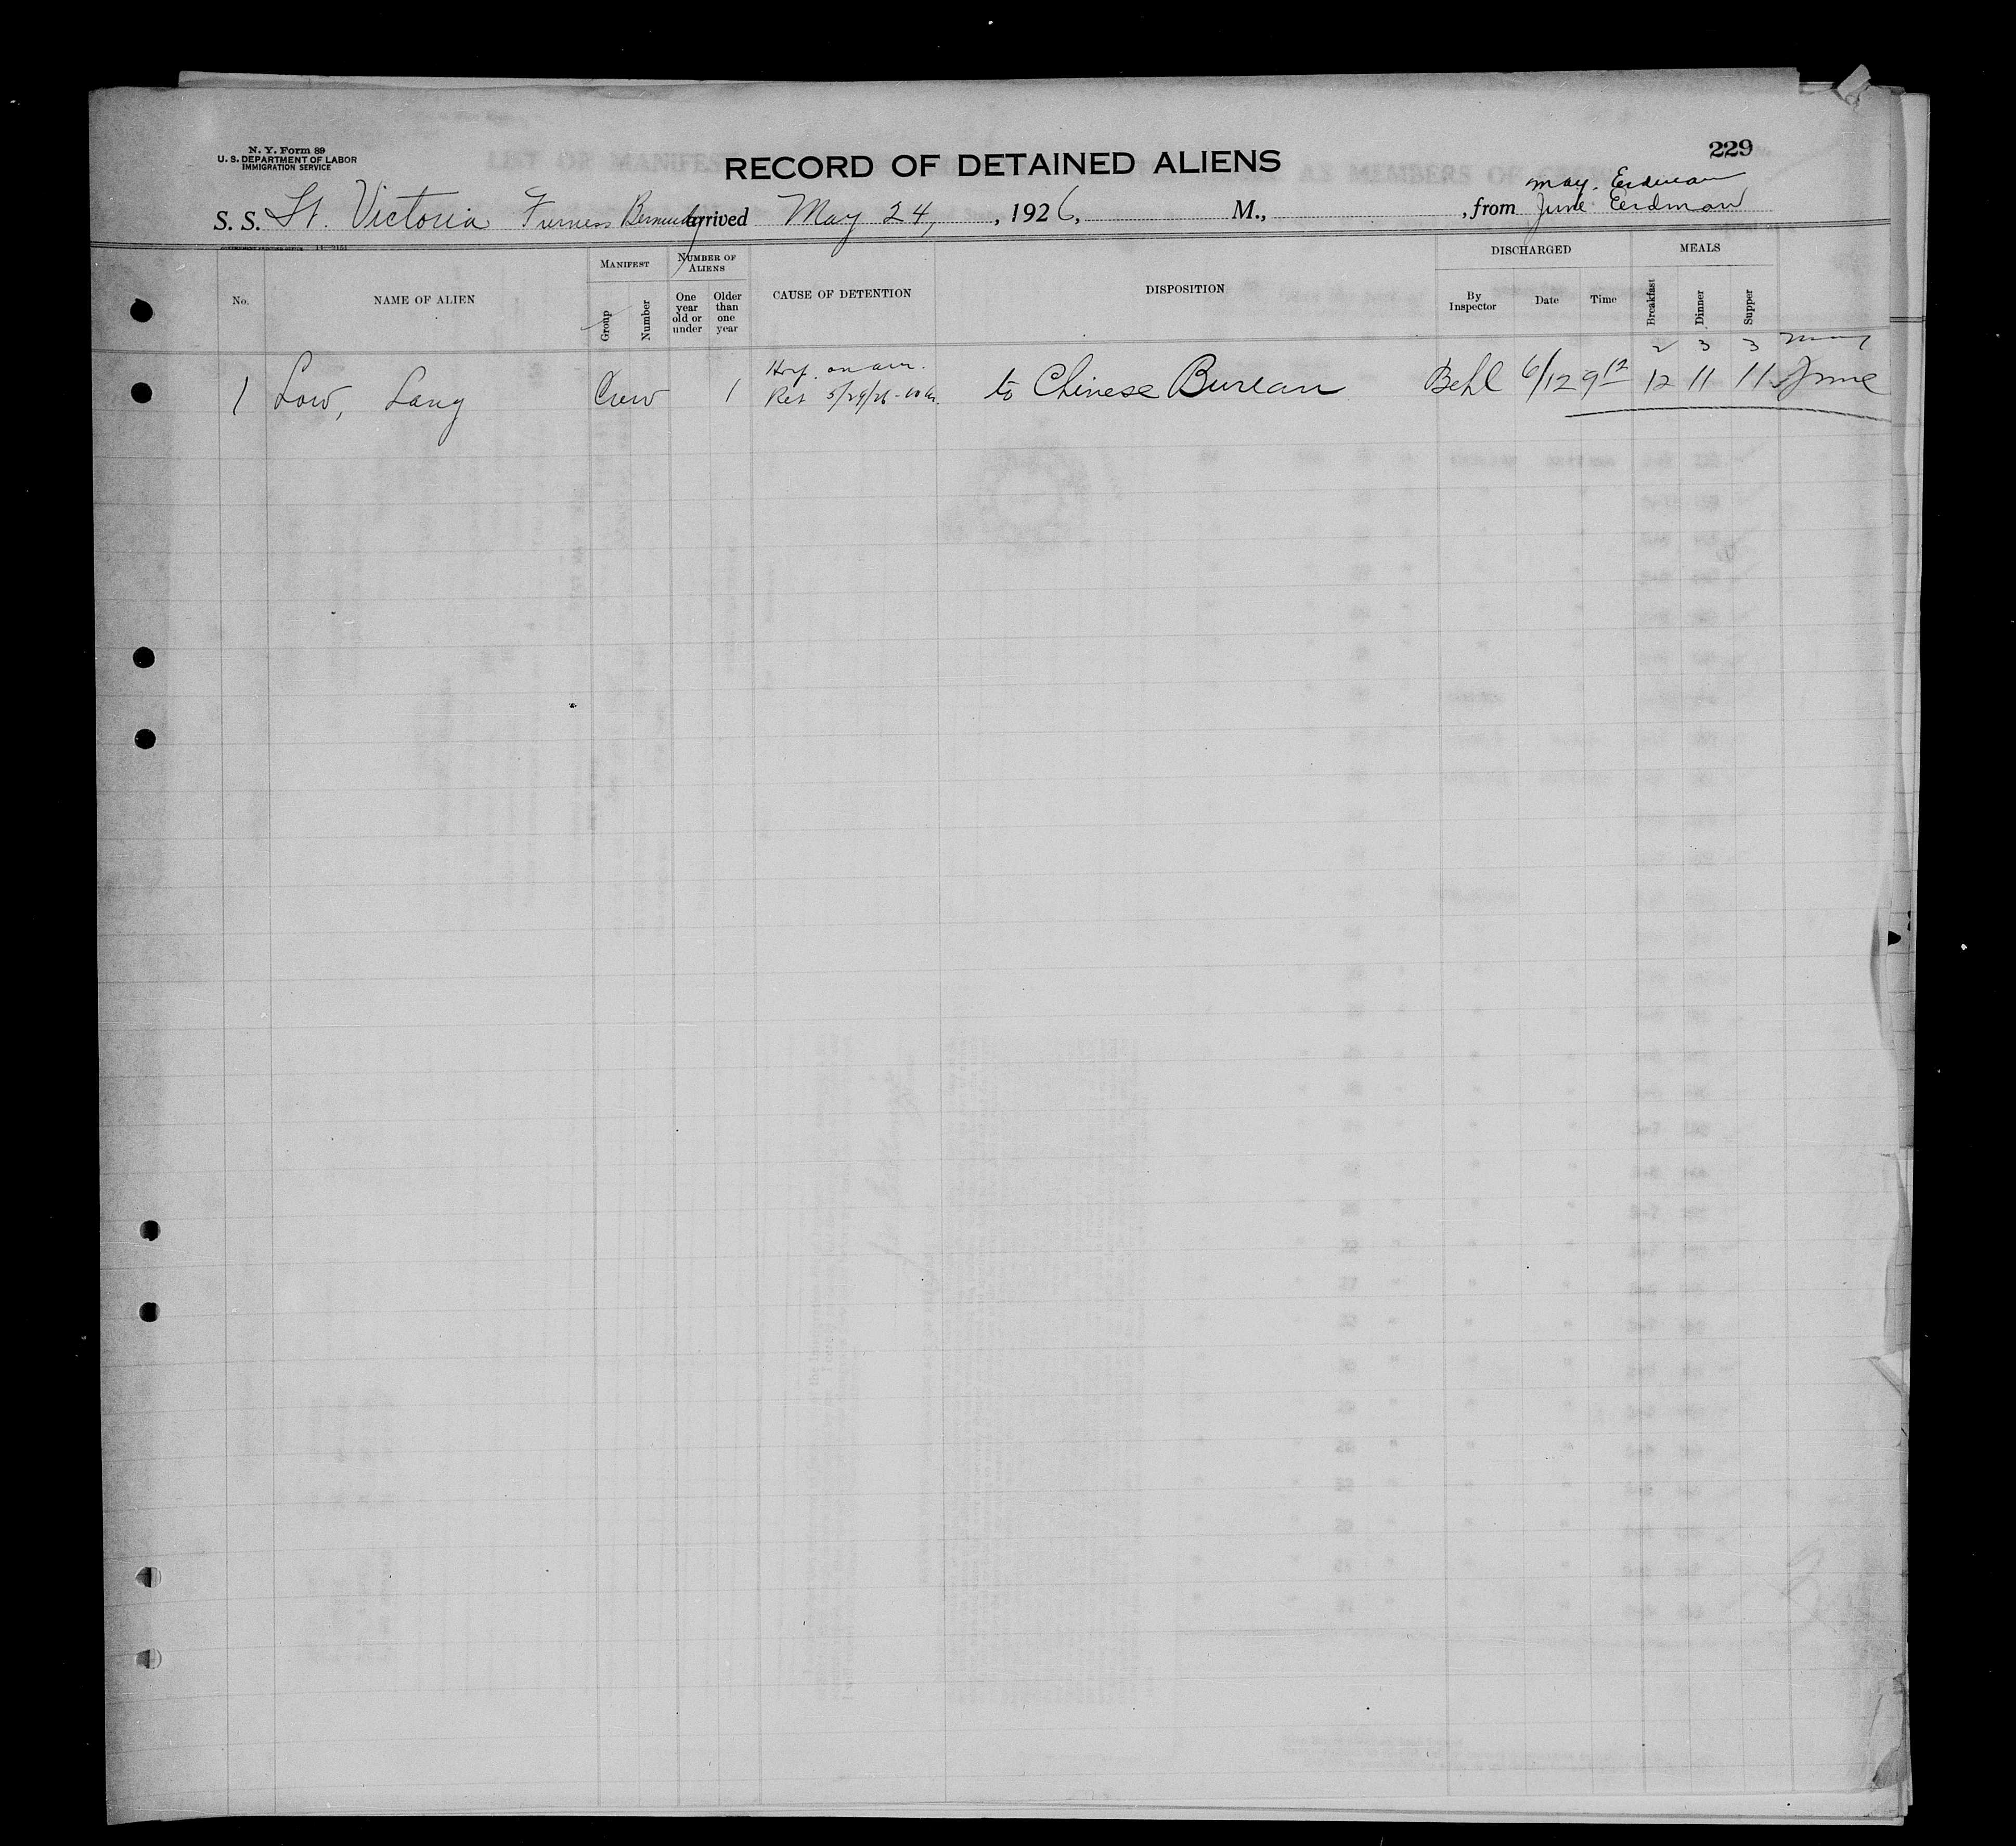 N. Y. Form 89
U. S. DEPARTMENT OF LABOR
IMMIGRATION SERVICE
RECORD OF DETAINED ALIENS
229
May. Erdman
S. S. Ft. Victoria Furness Bermuda arrived May 24, , 1926, M., , from June Eerdman
GOVERNMENT PRINTING OFFICE
No.
NAME OF ALIEN
MANIFEST
Group
Number
NUMBER OF ALIENS
One year old or under
Older than one year
CAUSE OF DETENTION
DISPOSITION
DISCHARGED
By Inspector
Date
Time
MEALS
Breakfast
Dinner
Supper
Hosp. on arr. 2 3 3 May
1 Low, Lang Crew 1 Ret 5/29/26 - to Chinese Bureau Behl 6/12 9 12 12 11 11 June